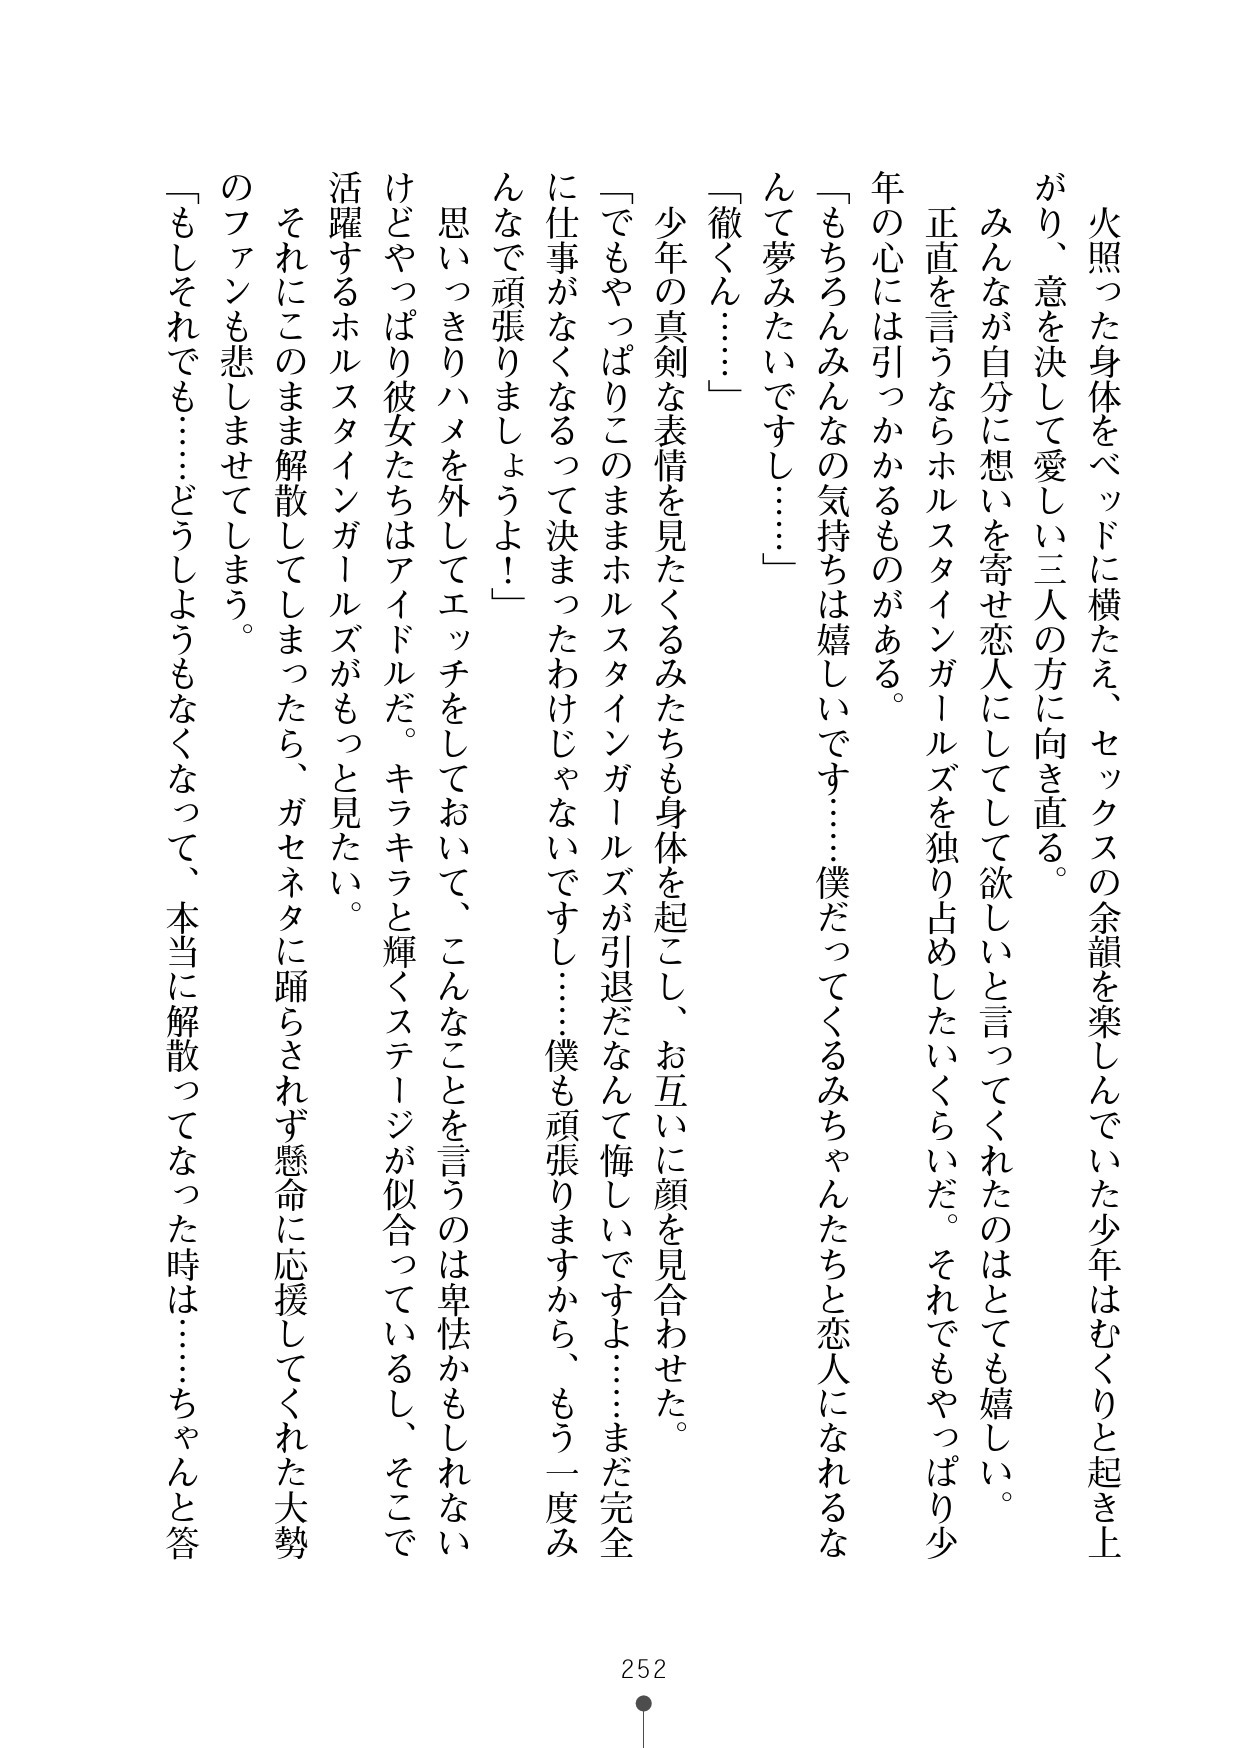 火照った身体をベッドに横たえ、セックスの余韻を楽しんでいた少年はむくりと起き上
がり、意を決して愛しい三人の方に向き直る。
みんなが自分に想いを寄せ恋人にしてして欲しいと言ってくれたのはとても嬉しい。
正直を言うならホルスタインガールズを独り占めしたいくらいだ。それでもやっぱり少
年の心には引っかかるものがある。
「もちろんみんなの気持ちは嬉しいです……僕だってくるみちゃんたちと恋人になれるな
んて夢みたいですし……」
「徹くん……」
少年の真剣な表情を見たくるみたちも身体を起こし、お互いに顔を見合わせた。
「でもやっぱりこのままホルスタインガールズが引退だなんて悔しいですよ……まだ完全
に仕事がなくなるって決まったわけじゃないですし……僕も頑張りますから、もう一度み
んなで頑張りましょうよ！」
思いっきりハメを外してエッチをしておいて、こんなことを言うのは卑怯かもしれない
けどやっぱり彼女たちはアイドルだ。キラキラと輝くステージが似合っているし、そこで
活躍するホルスタインガールズがもっと見たい。
それにこのまま解散してしまったら、ガセネタに踊らされず懸命に応援してくれた大勢
のファンも悲しませてしまう。
「もしそれでも……どうしようもなくなって、本当に解散ってなった時は……ちゃんと答
252